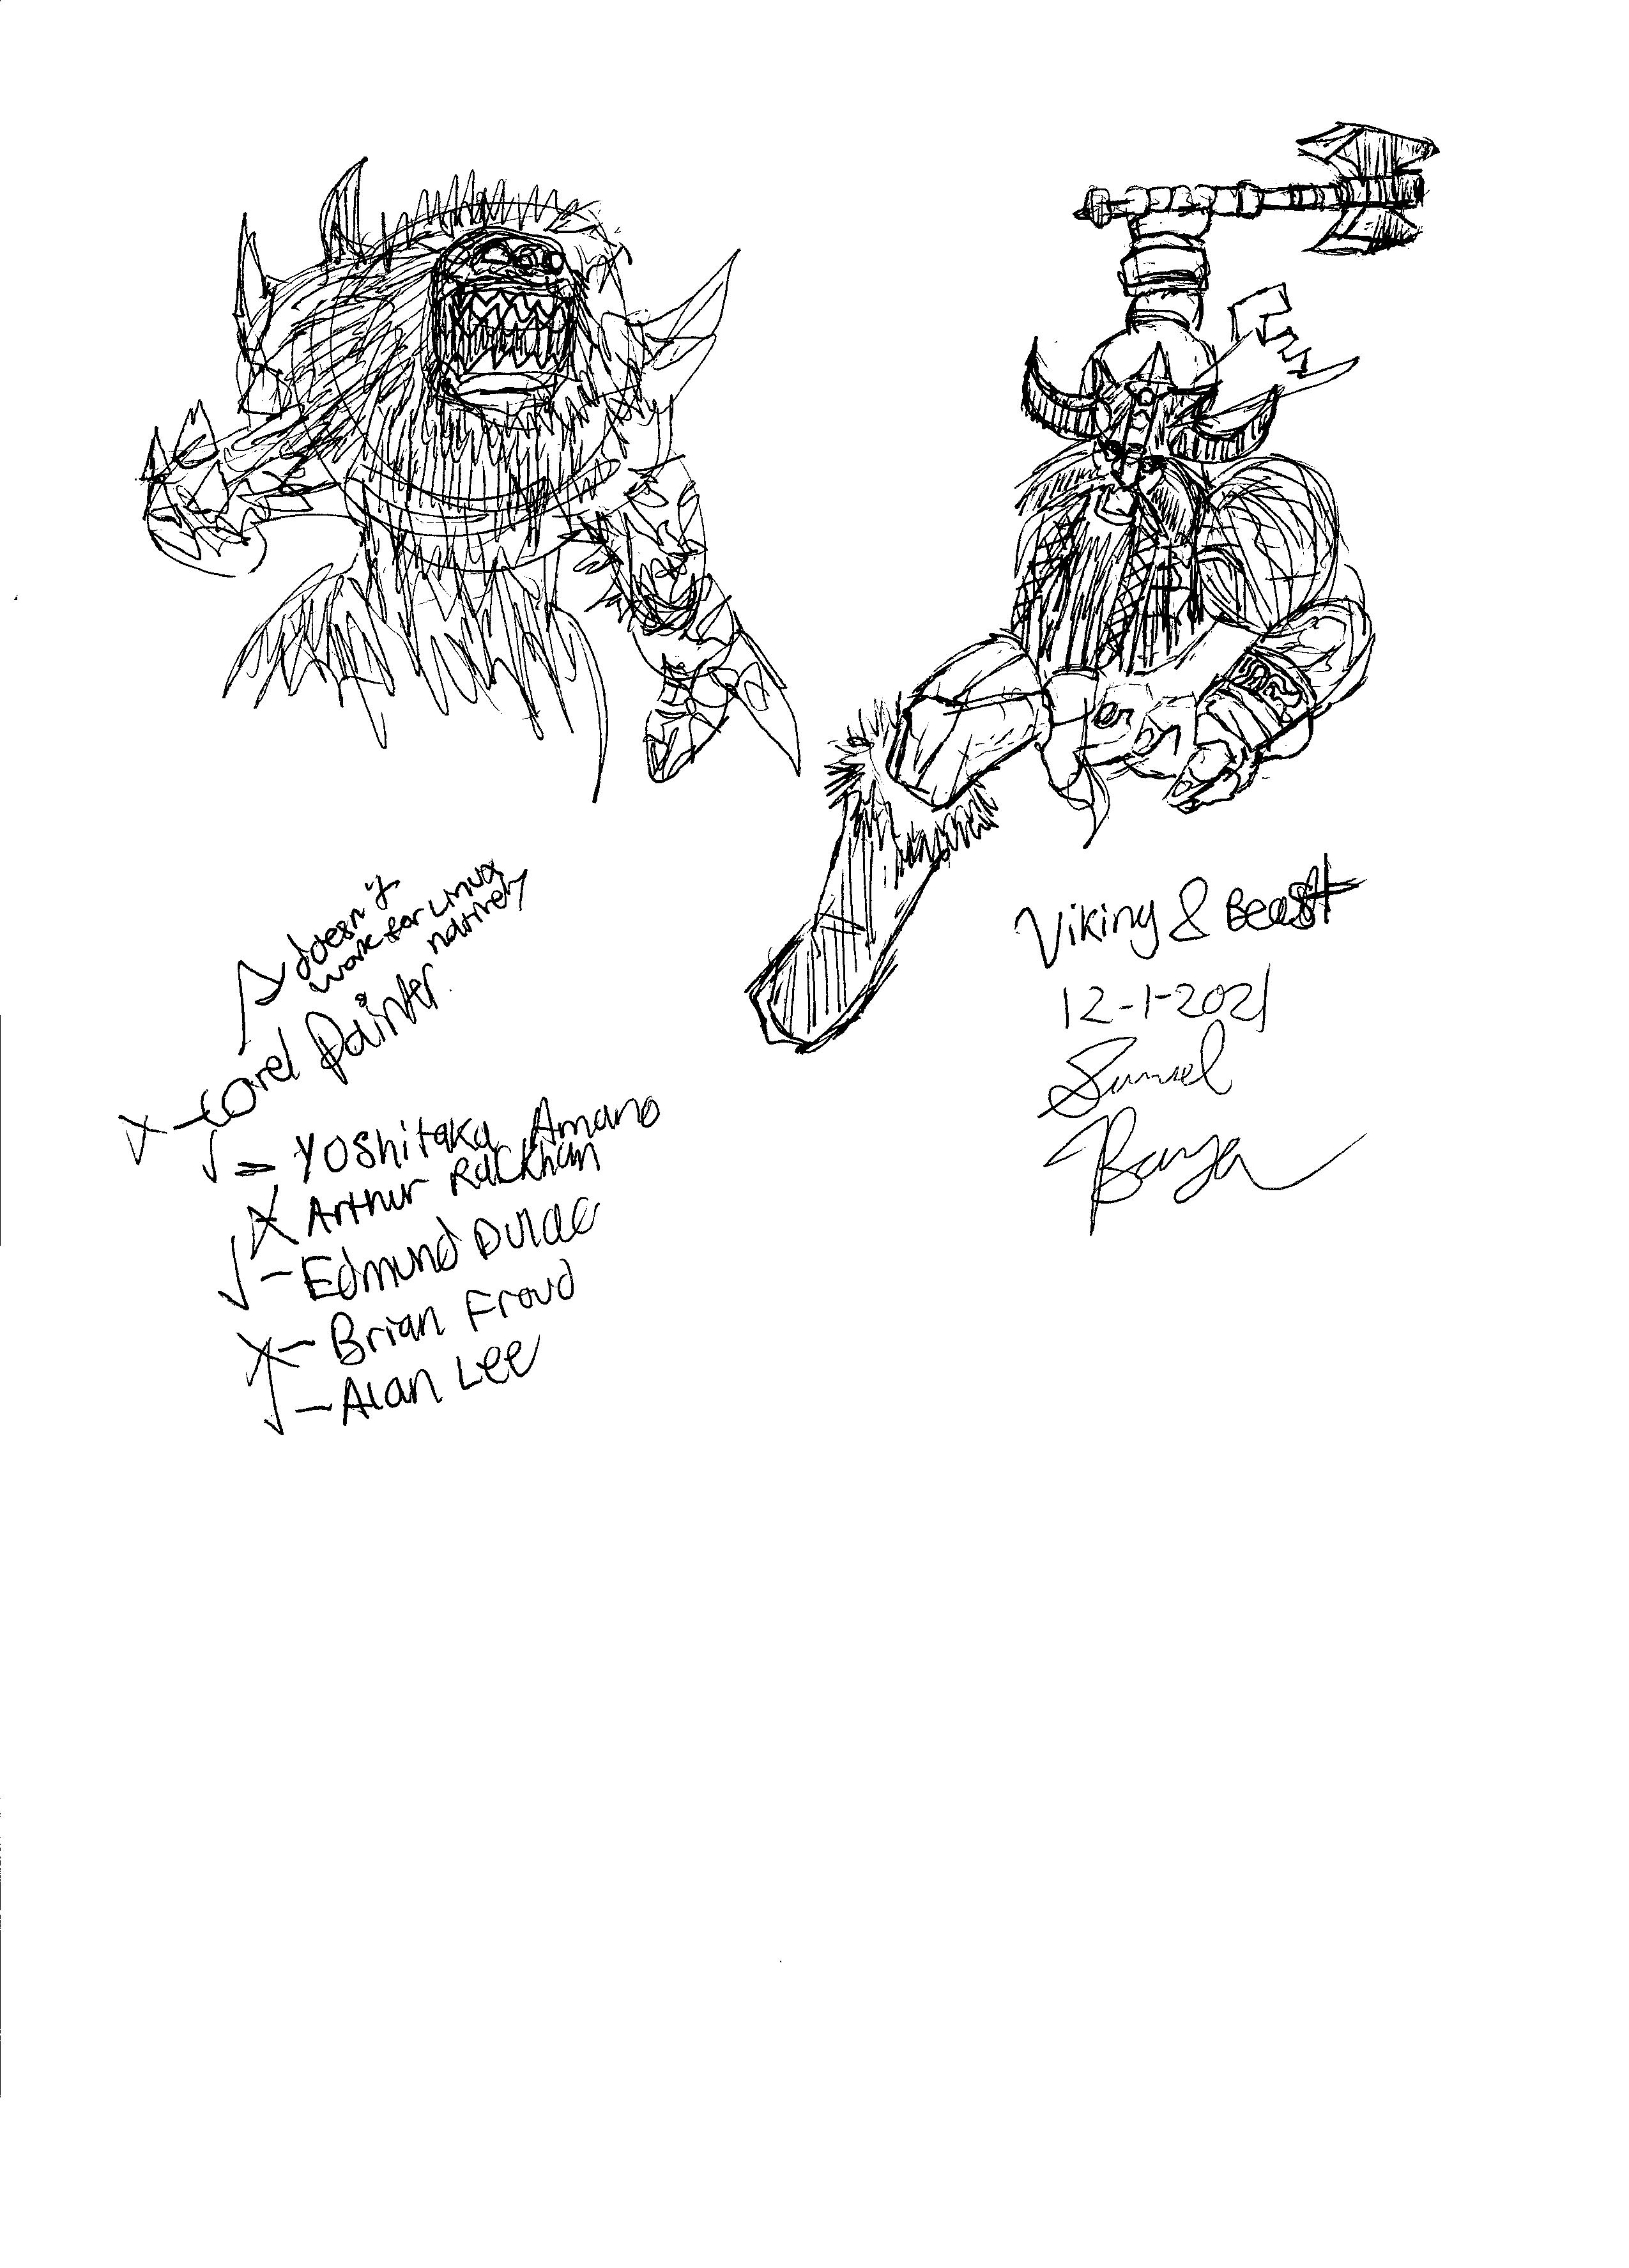 doesn't
work for Linux
natively
X - Corel Painter
√ = Yoshitaka Amano
X Arthur Rackham
√ - Edmund Dulac
X - Brian Froud
√ - Alan Lee
Viking & Beast
12-1-2021
Samuel
Banya